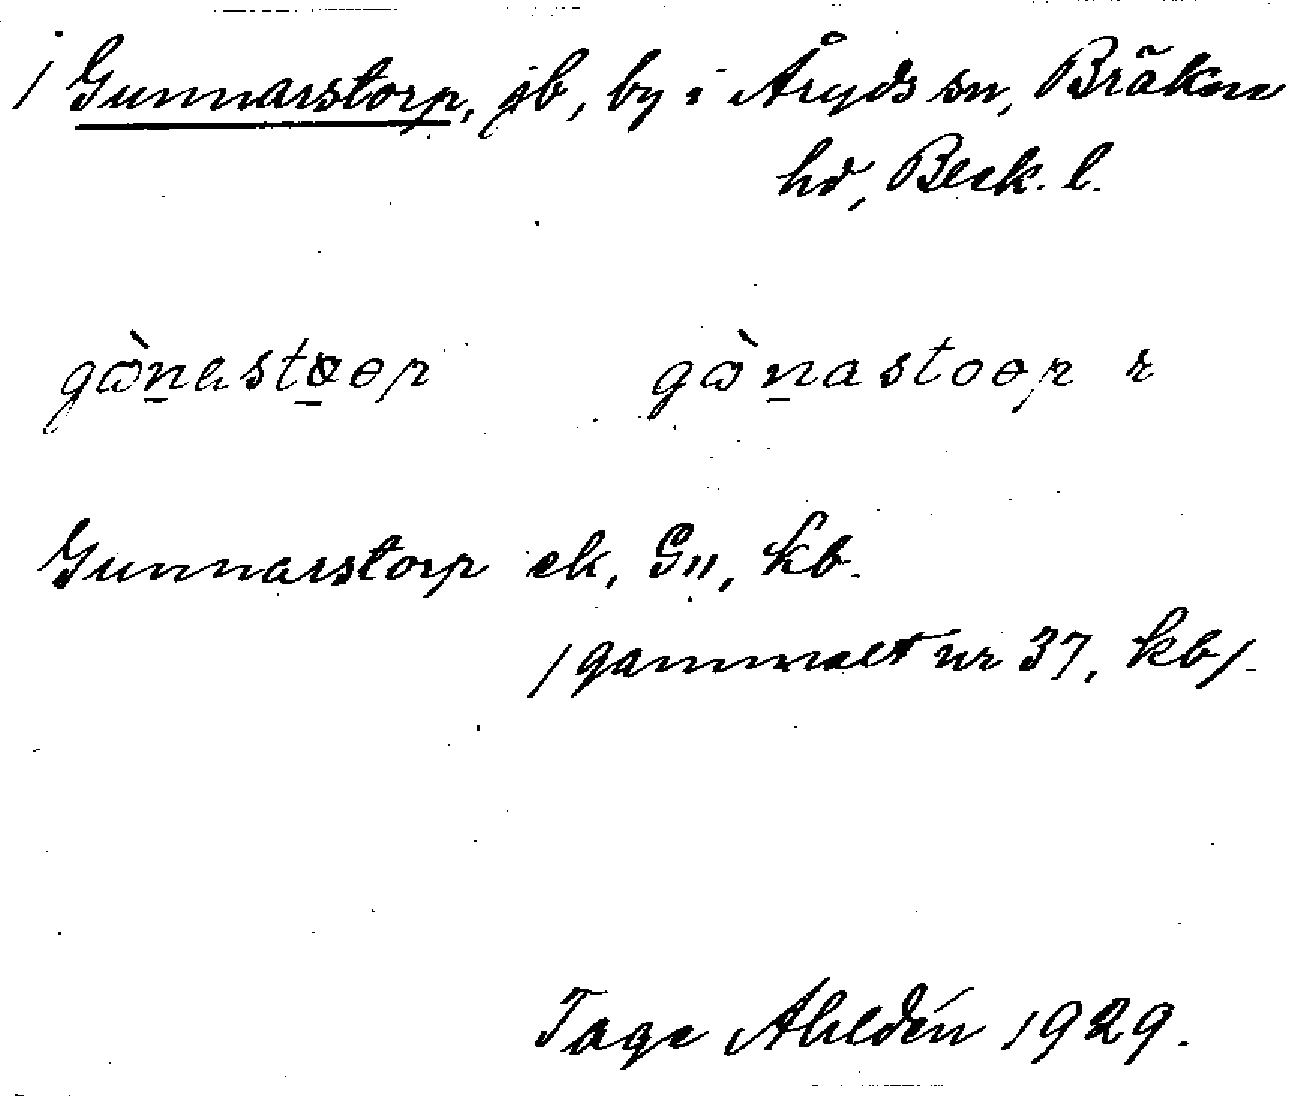 / Gunnarstorp, jb, by i Åryds sn, Bräkne
hd, Blek. l.
gὼnastoɵp gὼnastoɵp r
Gunnarstorp ek, G11, kb.
/ gammalt nr 37, kb/.
Tage Ahldén 1929.